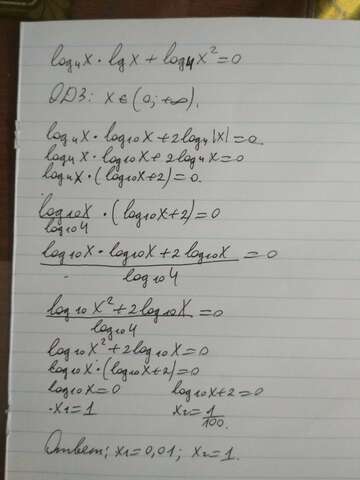 log₄x · lgx + log₄x² = 0
ОДЗ: x ∈ (0; +∞).
log₄x · log₁₀x + 2log₄|x| = 0.
log₄x · log₁₀x + 2log₄x = 0
log₄x · (log₁₀x + 2) = 0.
log₁₀x / log₁₀4 · (log₁₀x + 2) = 0
log₁₀x · log₁₀x + 2log₁₀x / log₁₀4 = 0
log₁₀x² + 2log₁₀x / log₁₀4 = 0
log₁₀x² + 2log₁₀x = 0
log₁₀x · (log₁₀x + 2) = 0
log₁₀x = 0 log₁₀x + 2 = 0
x₁ = 1 x₂ = 1/100.
Ответ: x₁ = 0,01; x₂ = 1.